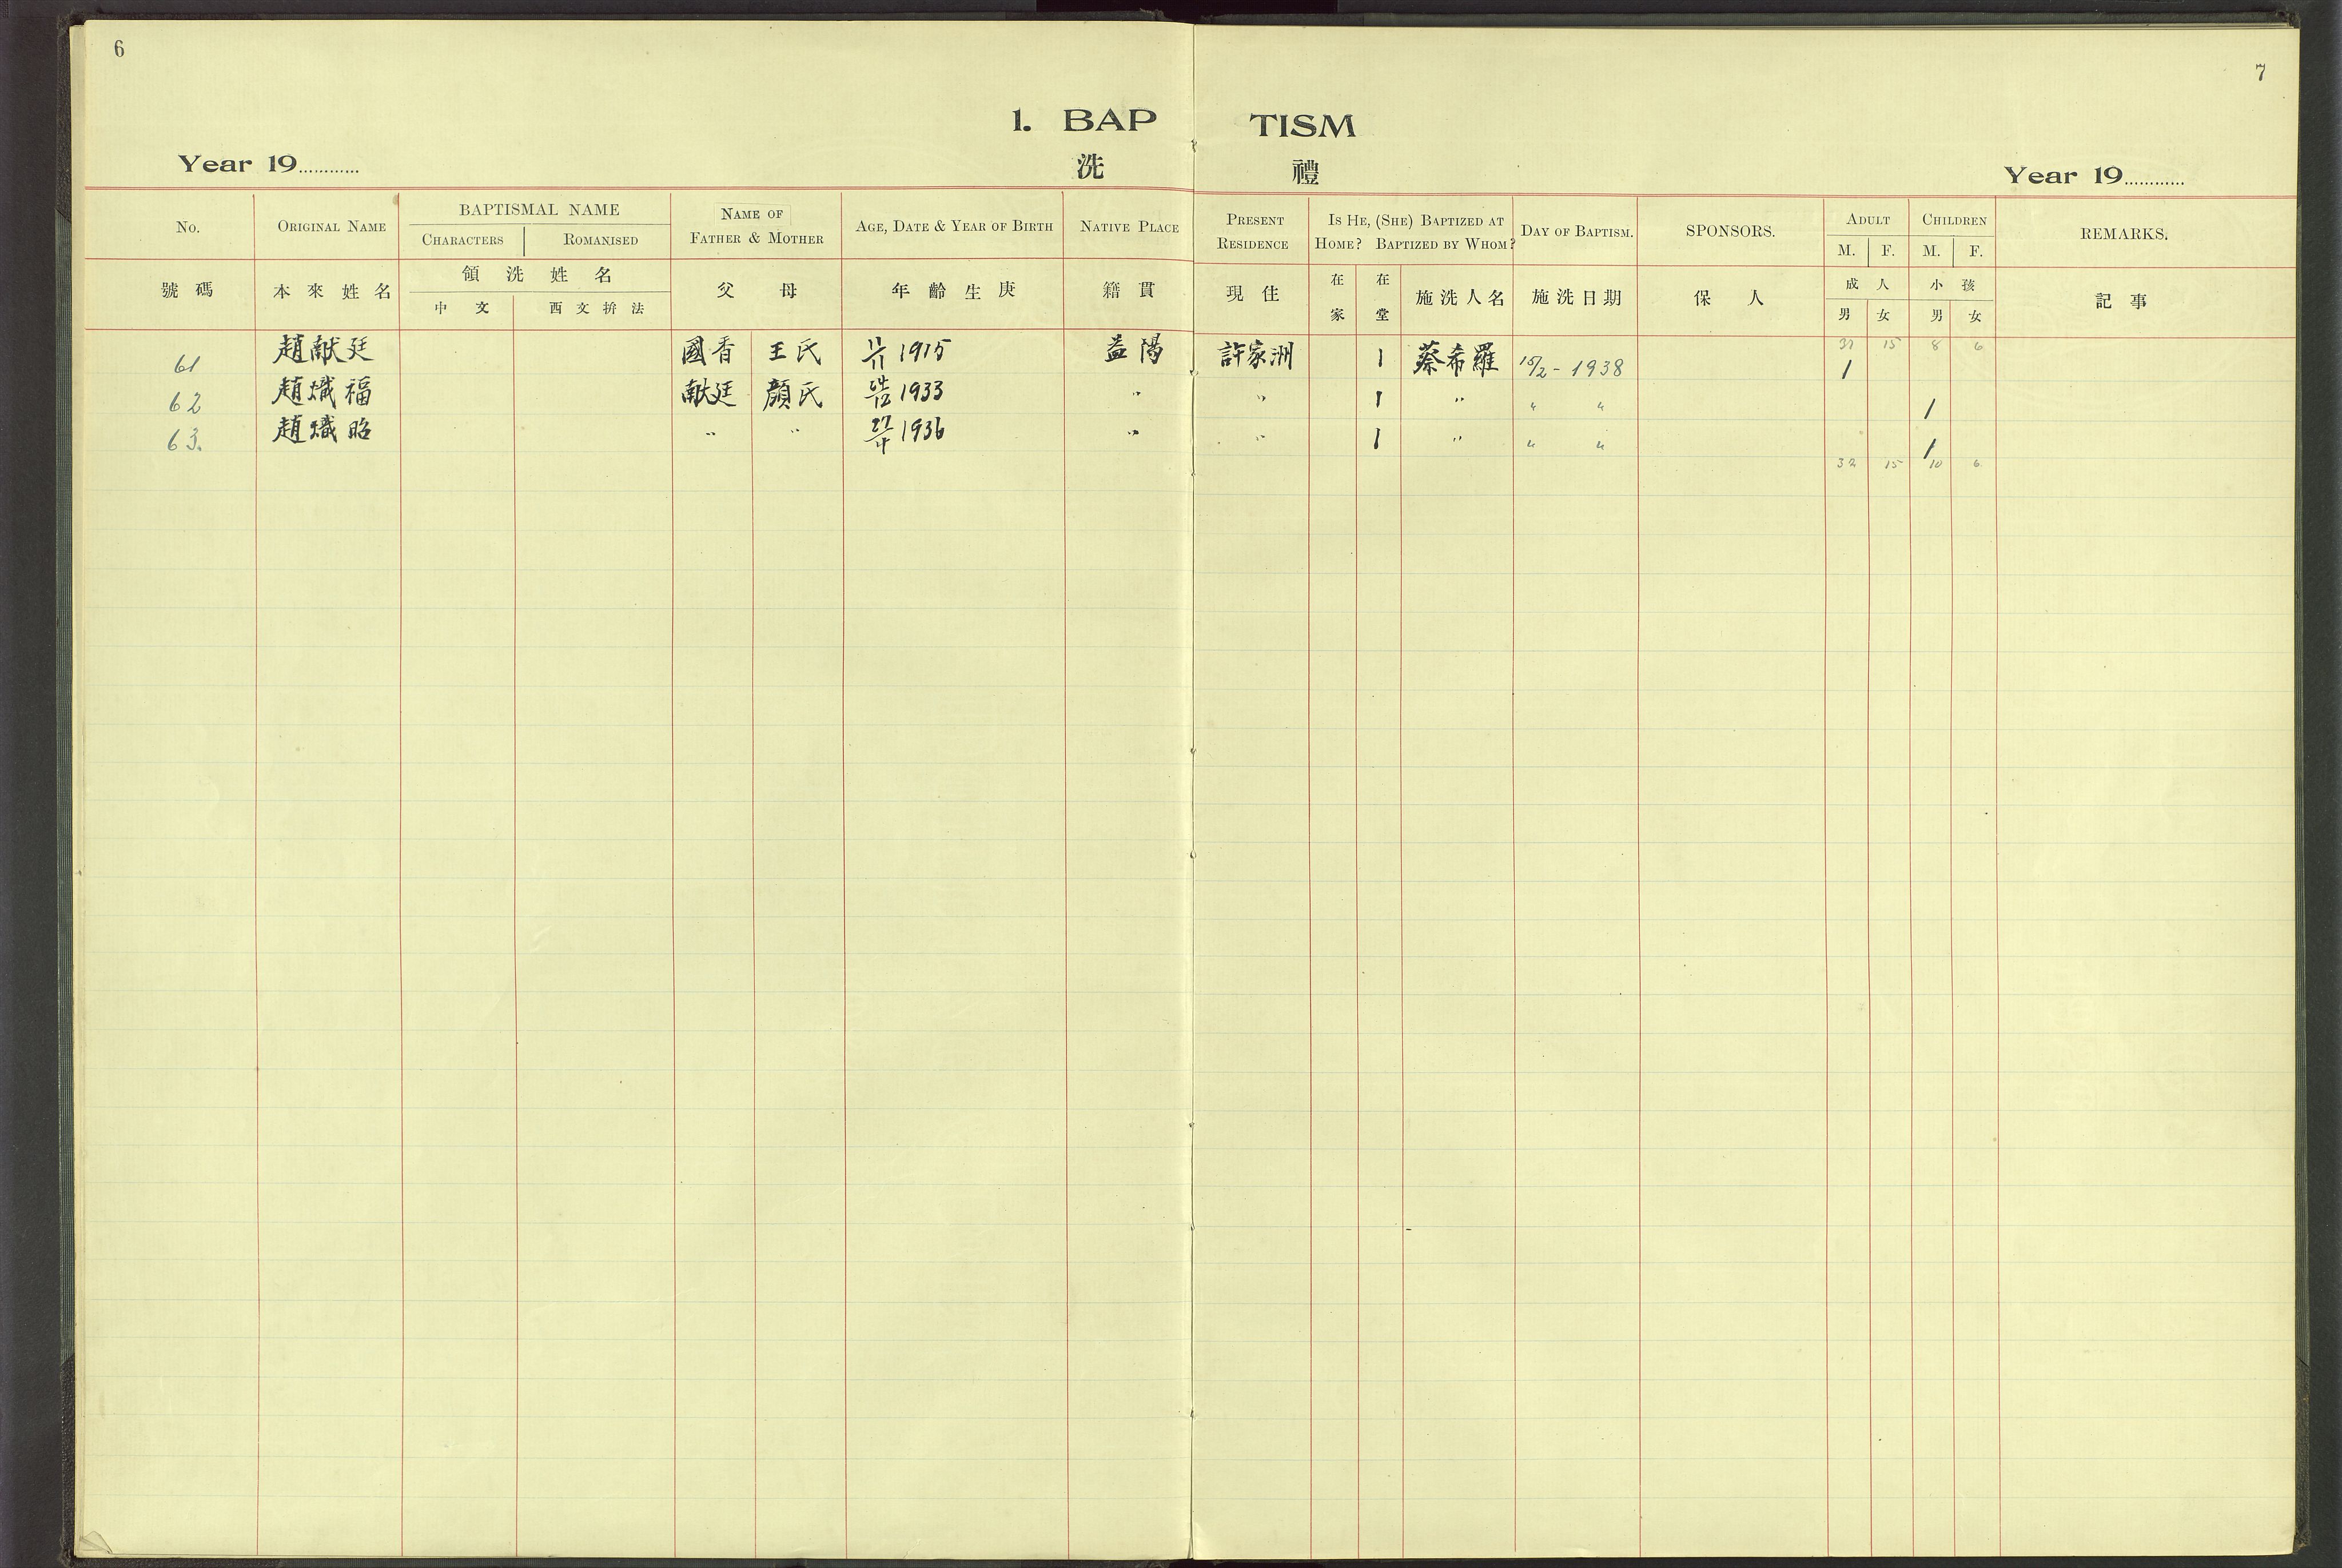 6
7
1. BAP TISM
洗 禮
Year 19............ Year 19............
No. ORIGINAL NAME BAPTISMAL NAME CHARACTERS ROMANISED NAME OF FATHER & MOTHER AGE, DATE & YEAR OF BIRTH NATIVE PLACE PRESENT RESIDENCE IS HE, (SHE) BAPTIZED AT HOME? BAPTIZED BY WHOM? DAY OF BAPTISM. SPONSORS. ADULT M. F. CHILDREN M. F. REMARKS.
號碼 本來姓名 領洗姓名 中文 西文拚法 父 母 年齡生庚 籍貫 現住 在家 在堂 施洗人名 施洗日期 保人 成人 男 女 小孩 男 女 記事
31 15 8 6
61 趙献廷 國香 王氏 11/11 1915 益陽 許家洲 1 蔡希羅 15/2 - 1938 1
62 趙熾福 献廷 顏氏 1933 " " 1 " " " 1
63. 趙熾昭 " " 27/4 1936 " " 1 " " " 1
32 15 10 6